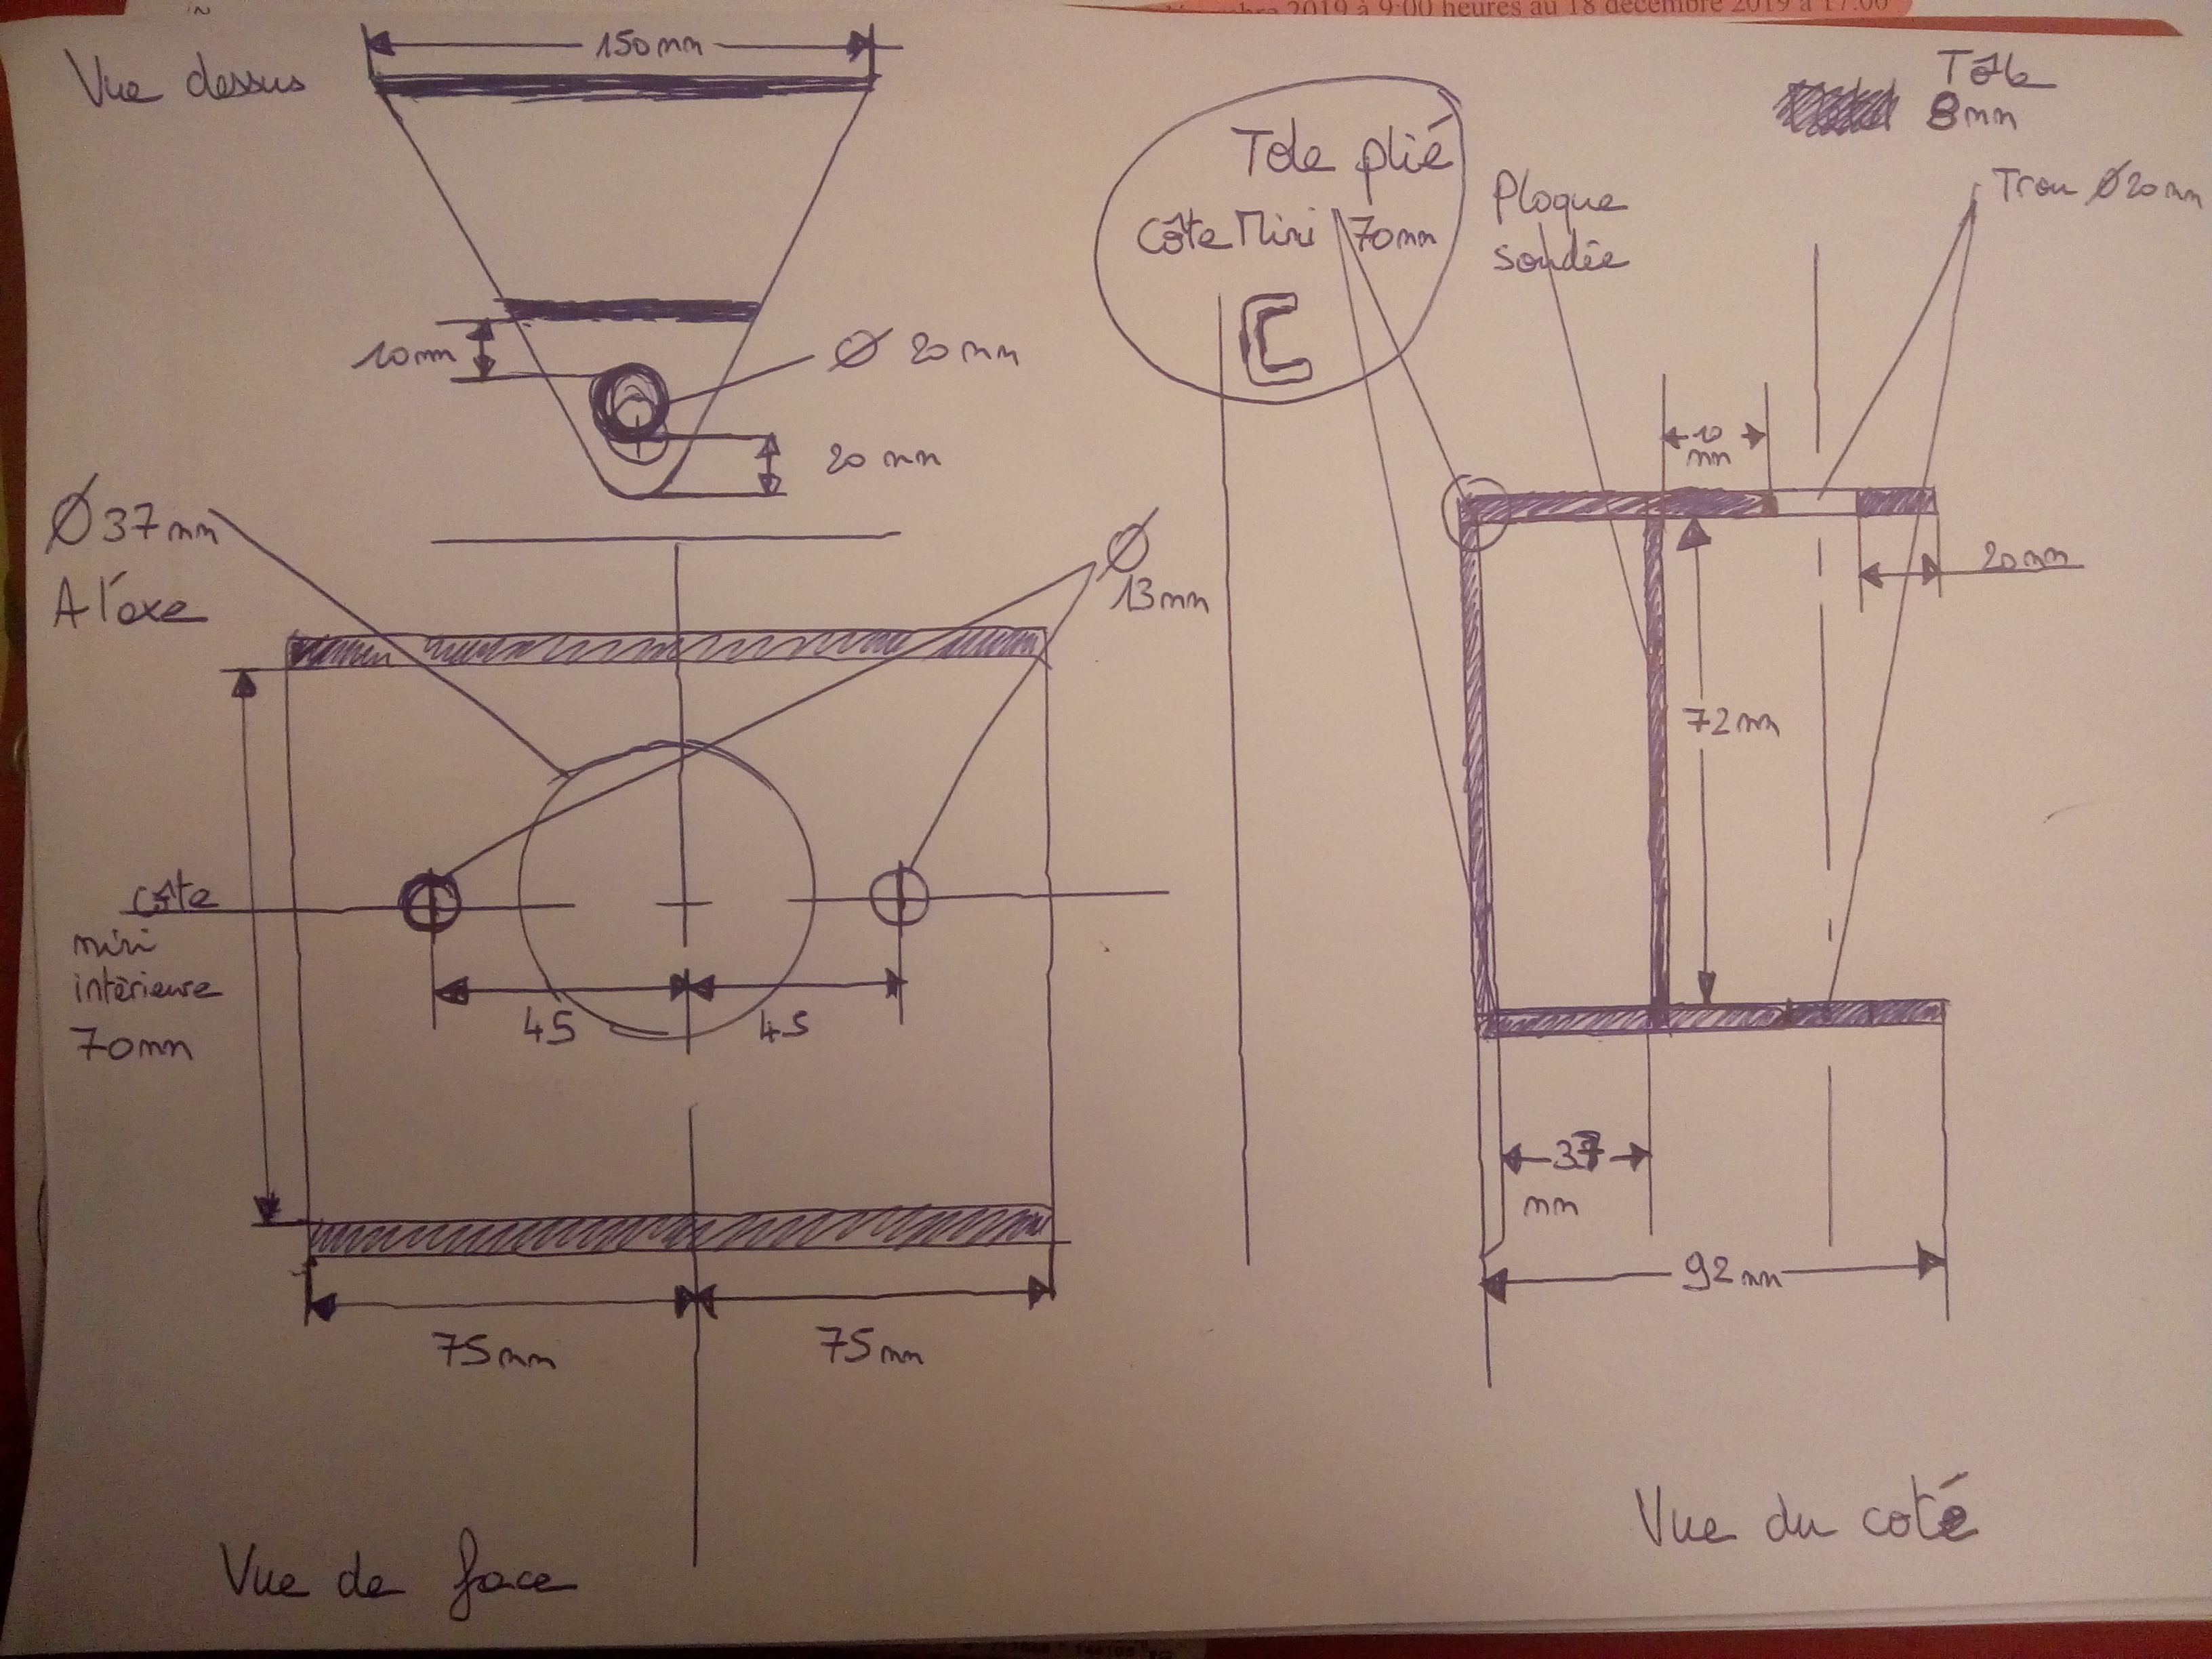 2019 à 9:00 heures au 18 décembre 2019 à 17:00
Vue dessus
150mm
10mm
Ø 20mm
20 mm
Tole plié
Côte Mini 70mm
Plaque
soudée
Tôle
8mm
Trou Ø20mm
10
mm
20mm
72mm
37
mm
92mm
Vue du coté
Ø37mm
A l'axe
Ø
13mm
Côte
mini
intèrieure
70mm
45
45
75mm
75mm
Vue de face